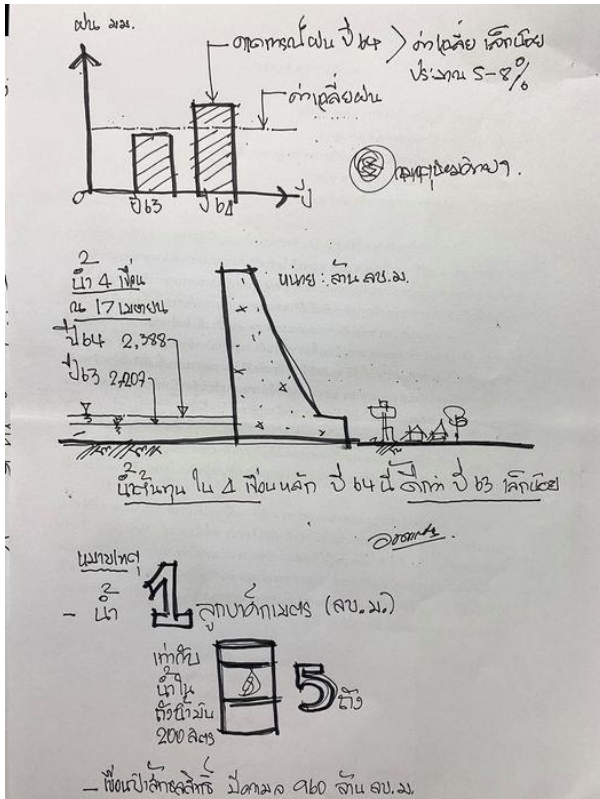 ฝน มม.
คาดการณ์ฝน ปี 64 > ค่าเฉลี่ย เล็กน้อย
ประมาณ 5-8%
ค่าเฉลี่ยฝน
กรมอุตุนิยมวิทยา.
ปี 63 ปี 64 ปี
น้ำ 4 เขื่อน
ณ 17 เมษายน
หน่วย : ล้าน ลบ.ม.
ปี 64 2,388
ปี 63 2,207
น้ำต้นทุน ใน 4 เขื่อนหลัก ปี 64 นี้ ดีกว่า ปี 63 เล็กน้อย
หมายเหตุ
- น้ำ 1 ลูกบาศ์กเมตร (ลบ.ม.)
เท่ากับ
น้ำใน
ถังน้ำมัน
200 ลิตร
5 ถัง
- เขื่อนป่าสักชลสิทธิ์ มีความจุ 960 ล้าน ลบ.ม.